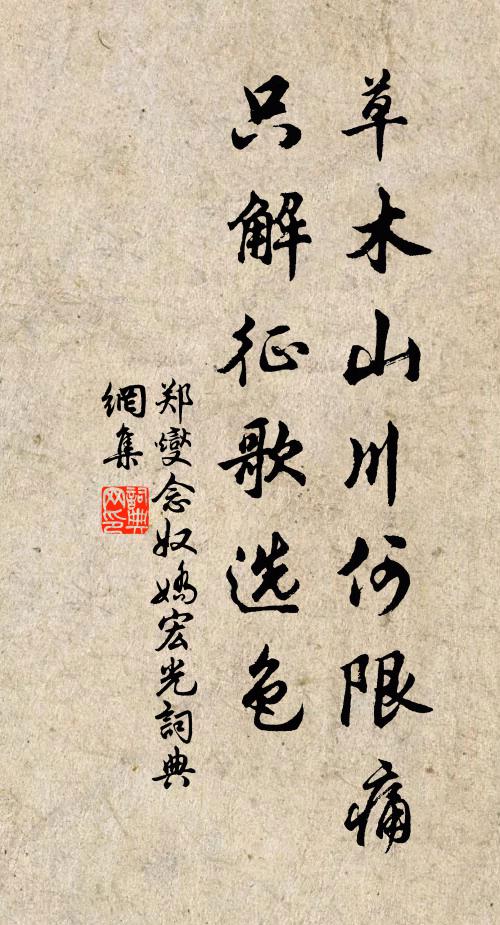 草木山川何限痛
只解征歌选色
郑燮念奴娇宏光詞典
網集
詞典
网印